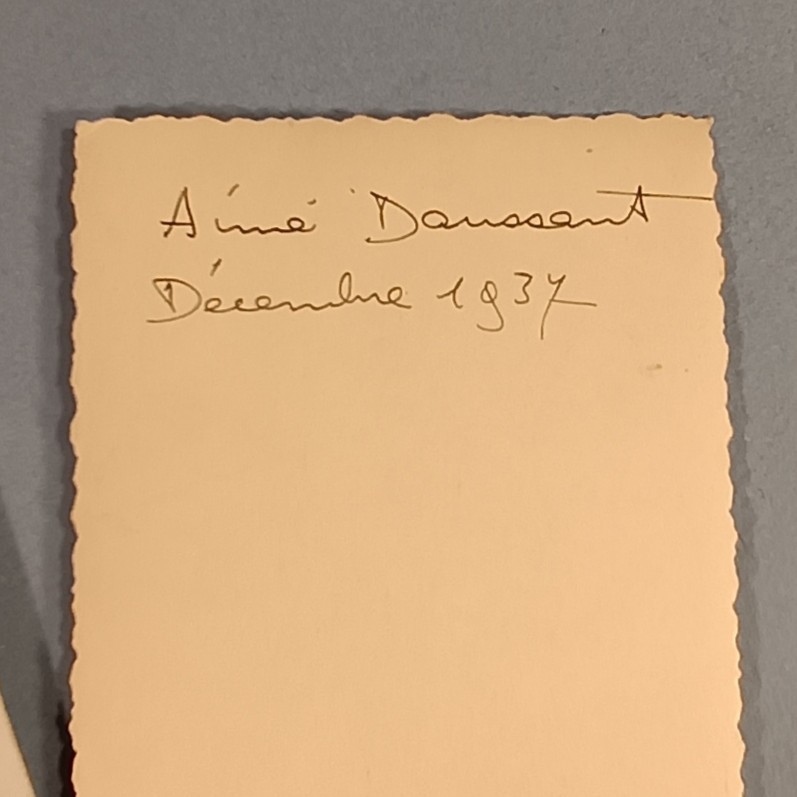 Aimé Daussant
Décembre 1937